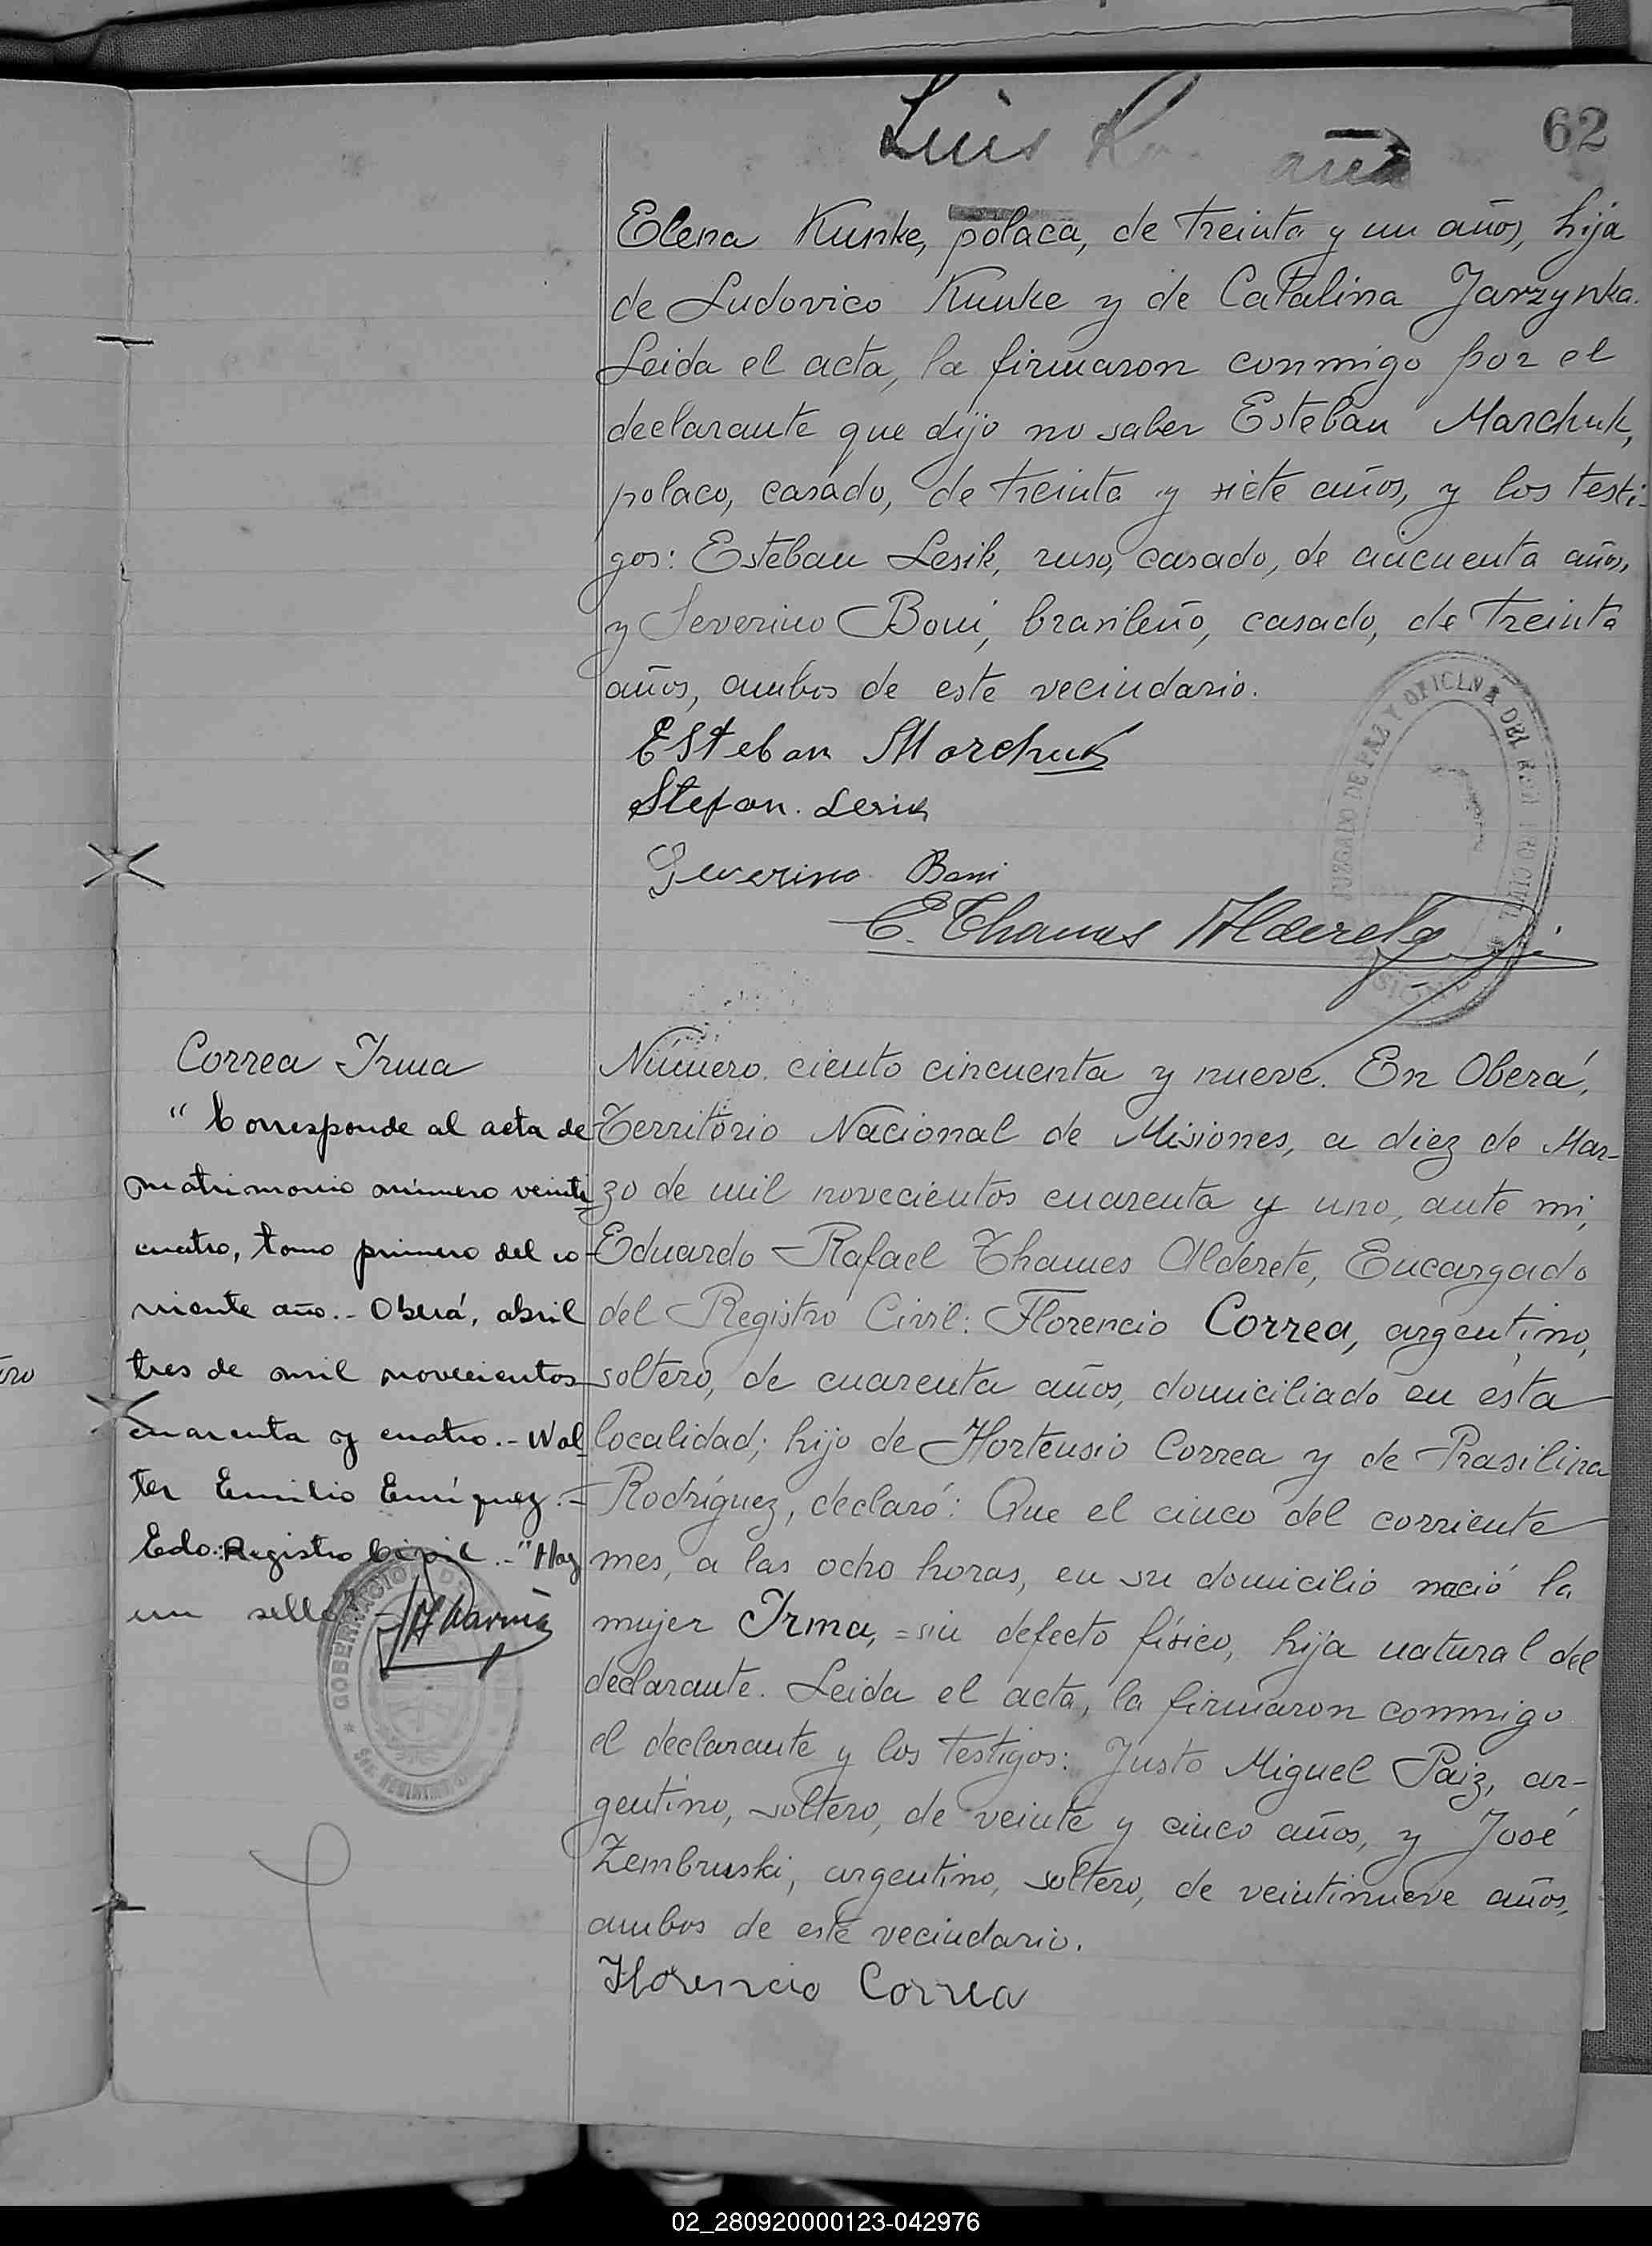 62
Luis
Elena Kunke, polaca, de treinta y un años, hija
de Ludovico Kunke y de Catalina Jarzynka.
Leida el acta, la firmaron conmigo por el
declarante que dijo no saber Esteban Marchuk,
polaco, casado, de treinta y siete años, y los testi-
gos: Esteban Lesik, ruso, casado, de cincuenta años,
y Severino Boni, brasileño, casado, de treinta
años, ambos de este vecindario.
Esteban Marchuk
Stefan. Lesik
Severino Boni
E. Thames Alderete
JUZGADO DE PAZ Y OFICINA DEL REGISTRO CIVIL
Correa Irma
"Corresponde al acta de
matrimonio número veinti
cuatro, tomo primero del co-
rriente año.- Oberá, abril
tres de mil novecientos
cuarenta y cuatro.- Wal-
ter Emilio Enríquez.-
Edo. Registro Civil.-" Hay
un sello
GOBERNACION DE
Número ciento cincuenta y nueve. En Oberá,
Territorio Nacional de Misiones, a diez de Mar-
zo de mil novecientos cuarenta y uno, ante mi,
Eduardo Rafael Thames Alderete, Encargado
del Registro Civil: Florencio Correa, argentino,
soltero, de cuarenta años, domiciliado en esta
localidad; hijo de Hortensio Correa y de Prasilina
Rodríguez, declaró: Que el cinco del corriente
mes, a las ocho horas, en su domicilio nació la
mujer Irma, =sin defecto físico, hija natural del
declarante. Leida el acta, la firmaron conmigo
el declarante y los testigos: Justo Miguel Paiz, ar-
gentino, soltero, de veinte y cinco años, y José
Zembruski, argentino, soltero, de veintinueve años,
ambos de este vecindario.
Florencio Correa
02_280920000123-042976